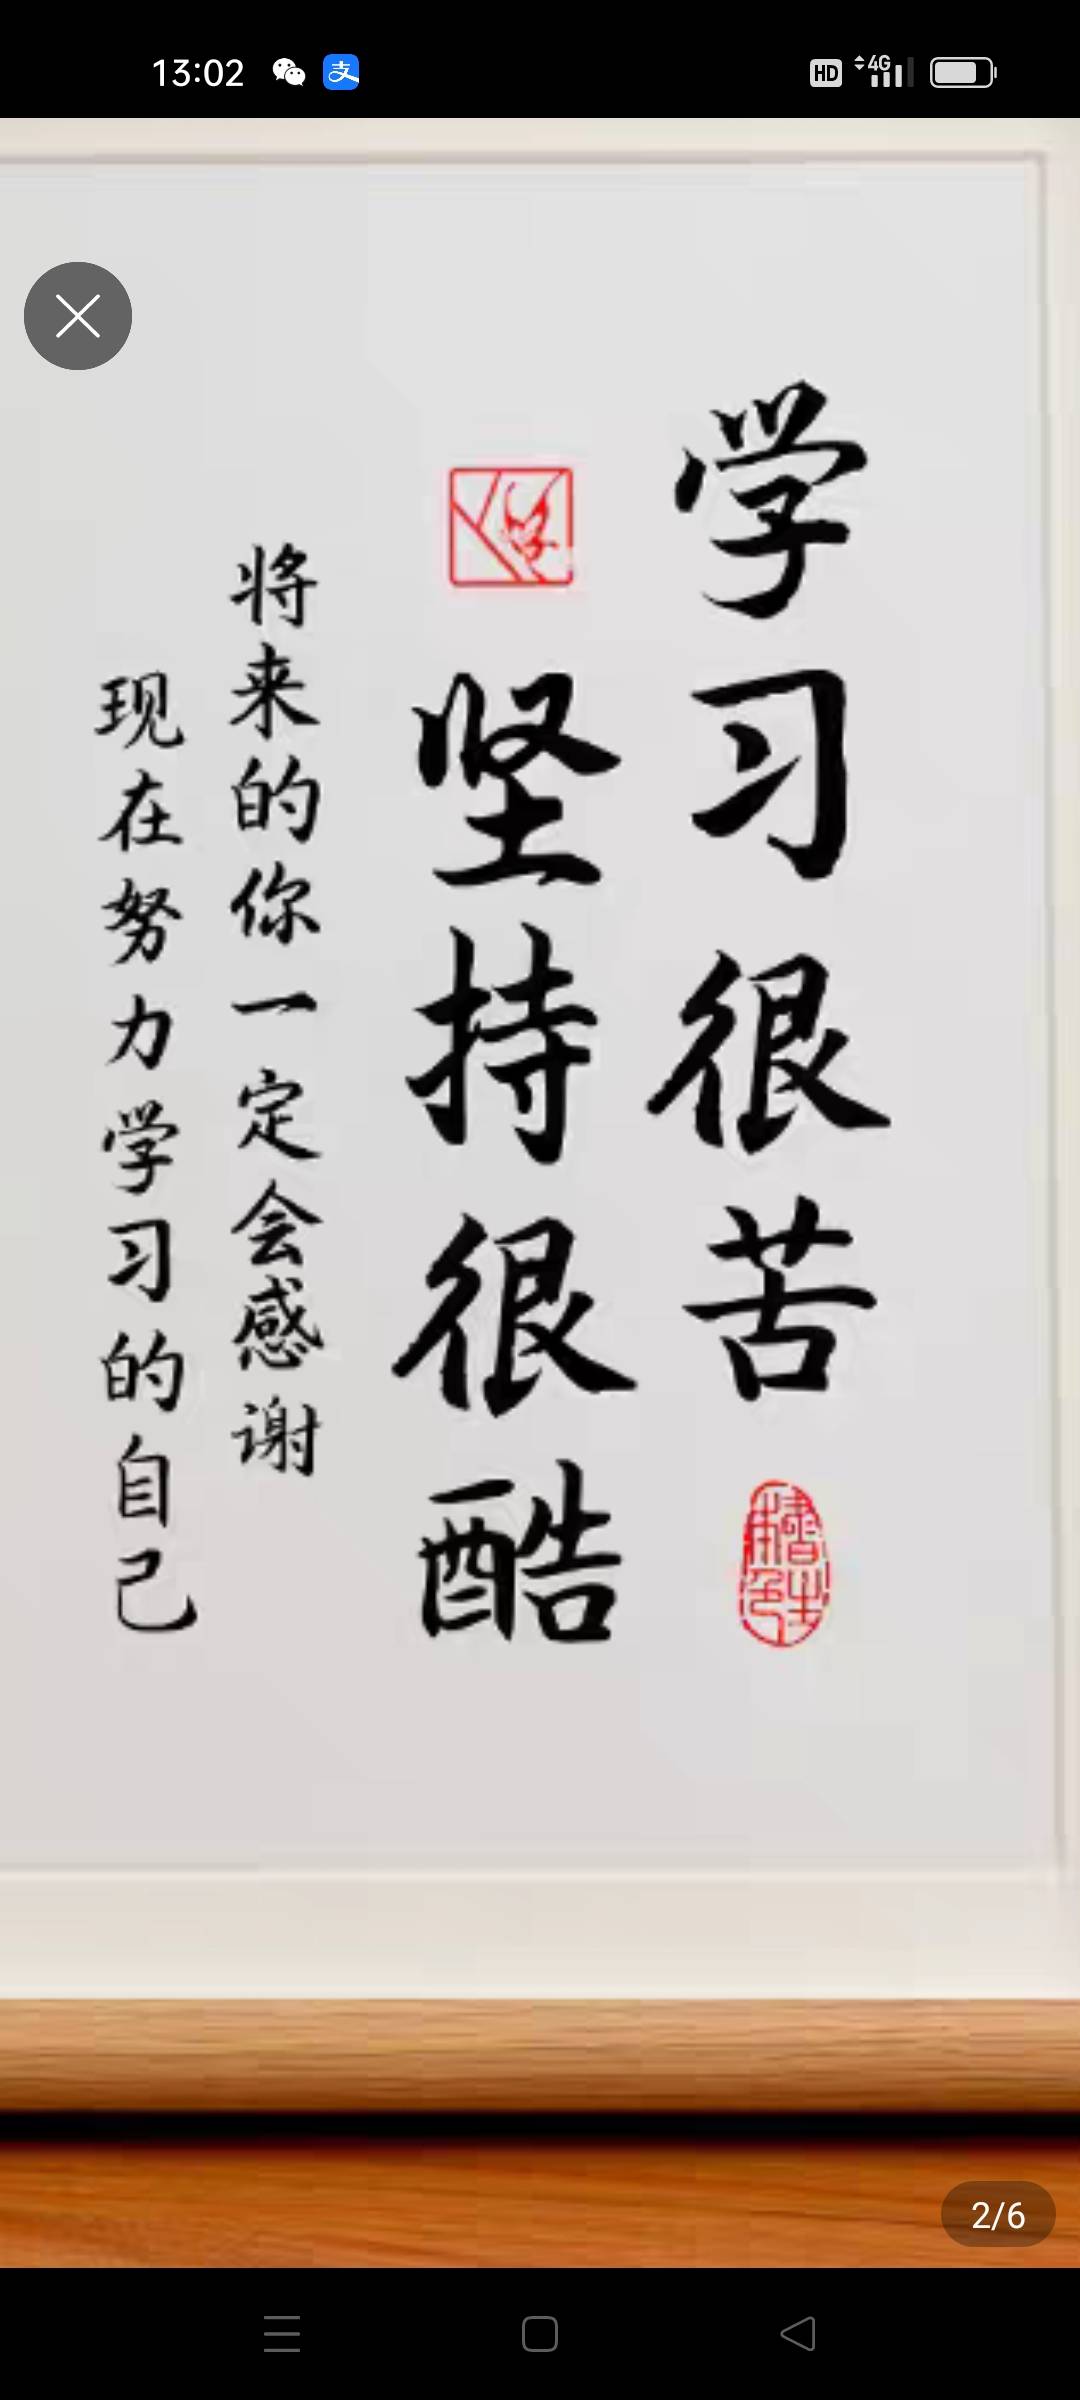 13:02
HD 4G
学习很苦
坚持很酷
将来的你一定会感谢
现在努力学习的自己
2/6